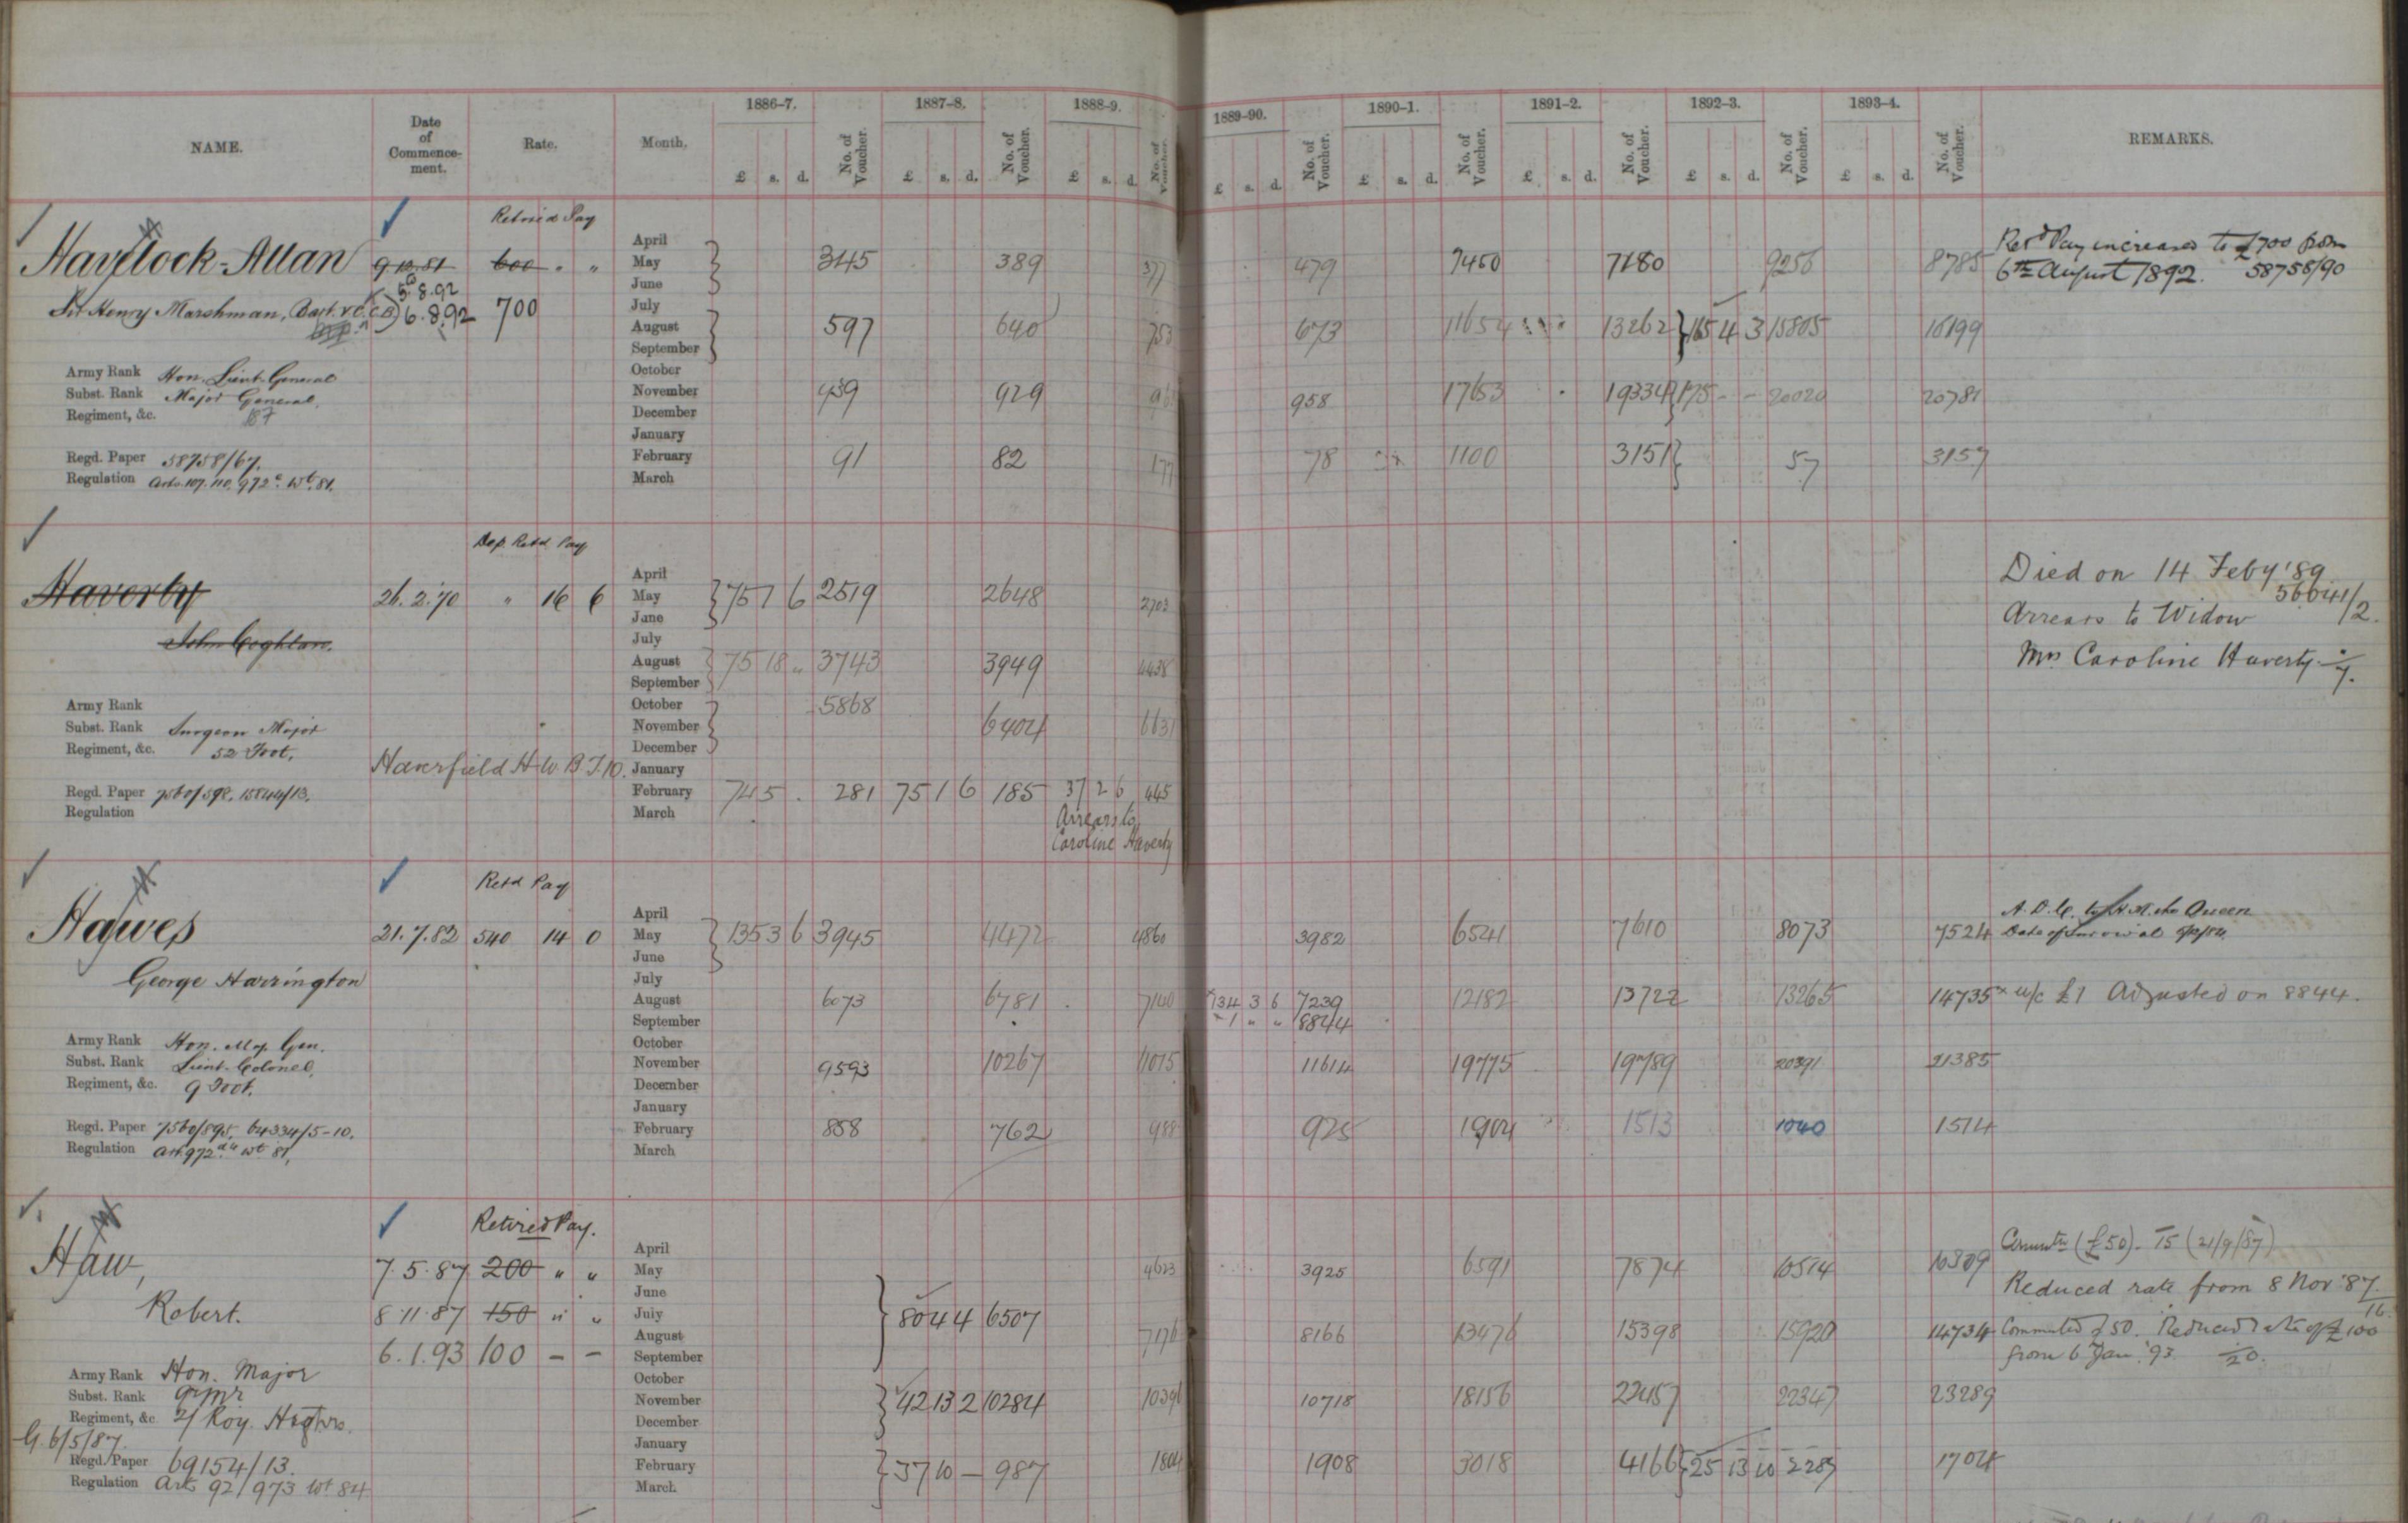 NAME. Date of Commence-ment. Rate. Month. 1886-7. £ s. d. No. of Voucher. 1887-8. £ s. d. No. of Voucher. 1888-9. £ s. d. No. of Voucher. 1889-90. £ s. d. No. of Voucher. 1890-1. £ s. d. No. of Voucher. 1891-2. £ s. d. No. of Voucher. 1892-3. £ s. d. No. of Voucher. 1893-4. £ s. d. No. of Voucher. REMARKS.
Retired Pay
April
Havelock-Allan 9.10.81 600 " " May 3445 389 377 479 7450 7180 9256 8785 Retd Pay increased to £700 from
June 6th August 1892. 58758/90
5.8.92
Sir Henry Marshman, Bart. V.C. C.B. 6.8.92 700 July
August 597 640 753 673 11654 13262 165 4 3 15805 16199
September
Army Rank Hon. Lieut-General October
Subst. Rank Major General November 939 929 958 17653 19334 175 - - 20020 20781
Regiment, &c. December
January
Regd. Paper 58758/67. February 91 82 177 78 1100 3151 57 3157
Regulation Arts. 107. 110. 972 c. Wt. 81. March
Retd Pay
April Died on 14 Feby '89
Haverty 26.2.70 " 16 6 May 75 1 6 2519 2648 2703 56641/2.
June Arrears to Widow
John Coghlan. July
August 75 18 " 3743 3949 4438 Mrs Caroline Haverty
September
Army Rank October 5868
Subst. Rank Surgeon Major November 6404 6631
Regiment, &c. 52 Foot. December
Haverfield H.W. B.T. 10. January
Regd. Paper 7560/592, 15844/13. February 74 5 . 281 75 1 6 185 37 2 6 445
Regulation March Arrears to
Caroline Haverty
Retd Pay
April A.D.C. to H.M. the Queen
Hawes 21.7.82 540 14 0 May 135 3 6 3945 4472 4860 3982 6541 7610 8073 7524
June
George Harrington July
August 6073 6781 7140 134 3 6 7239 12182 13722 13265 14735 x u/c £1 Adjusted on 8844.
September 1 " " 8844
Army Rank Hon. Maj. Gen. October
Subst. Rank Lieut-Colonel November 9593 10267 11075 11614 19775 19789 20391 21385
Regiment, &c. 9 Foot. December
January
Regd. Paper 7560/595, 64334/5-10. February 858 762 988 925 1904 1513 1040 1514
Regulation Art. 972 Wt 81. March
Retired Pay.
April (£50). 15 (21/9/87)
Haw, 7.5.87 200 " " May 4623 3925 6591 7874 10514 10309
June Reduced rate from 8 Nov '87.
16
Robert. 8.11.87 150 " " July 80 4 4 6507
August 7176 8166 13476 15398 15920 14734 Commuted £50. Reduced rate of £100
6.1.93 100 - - September from 6 Jan. '93. 20.
Army Rank Hon. Major October
Subst. Rank Qr Mr November 42 13 2 10284 10396 10718 18156 22457 22347 23289
Regiment, &c. 2/ Roy. Highrs. December
G. 6/5/87. January
Regd. Paper 69154/13. February 37 10 - 987 1804 1908 3018 4166 25 13 10 2289 1704
Regulation Art. 92/973 Wt 84 March